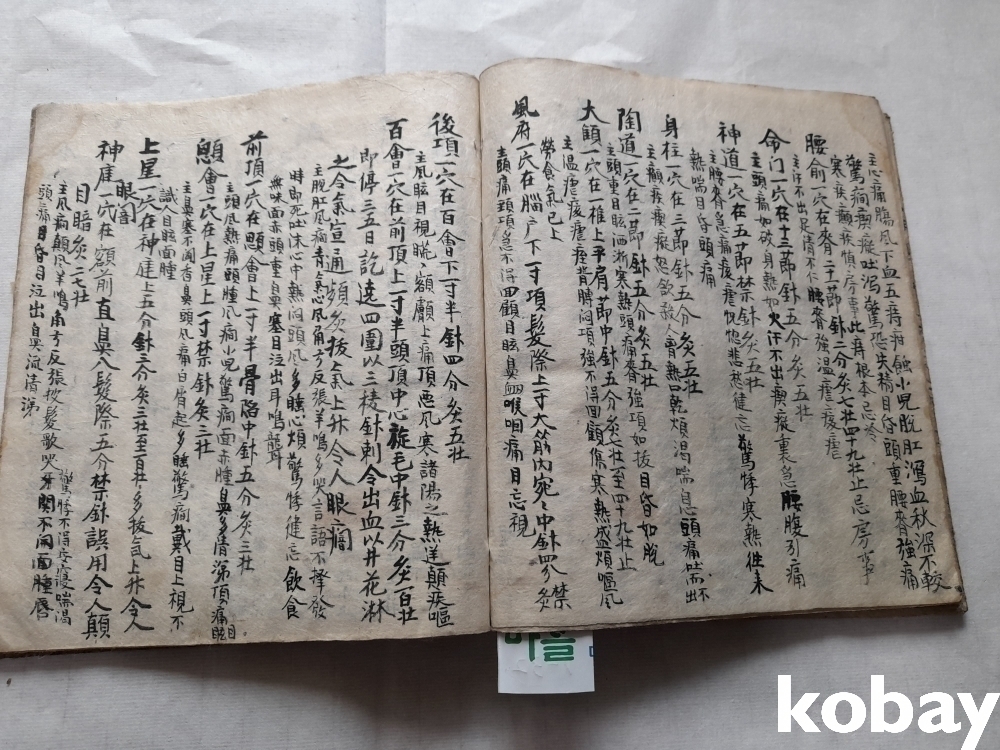 主心痛腸風下血五痔疳蝕小兒脫肛瀉血秋深不較
驚癎瘈瘲吐瀉驚恐失精目昏頭重腰脊強痛
寒疾癲疾慎房事此痔根本忌冷
腰俞一穴在脊二十一節針二分灸七壯四十九壯止忌房事
主汗不出足淸不仁腰脊強溫瘧痎瘧
命门一穴在十三節針五分灸五壯
主頭痛如破身熱如火汗不出瘈瘲裏急腰腹引痛
神道一穴在五節禁針灸五壯
主腰脊急痛痎瘧恍惚悲愁健忘驚悸寒熱徃來
熱喘目昏頭痛
身柱一穴在三節針五分灸五壯
主癲疾瘈瘲怒欲殺人身熱口乾煩渴喘息頭痛吐不出
陶道一穴在二節針五分灸五壯
主頭重目眩洒淅寒熱頭痛脊強項如拔目昏如脫
大顀一穴在一椎上平肩節中針五分灸七壯至四十九壯止
主溫瘧痎瘧疰背膊悶項強不得回顧傷寒熱盛煩嘔風
勞食氣已上
風府一穴在腦户下一寸項髮際上一寸大筋內宛〻中針四分禁灸
主頭痛頸項急不得回顧目眩鼻衄喉咽痛目忘視
後項一穴在百會下寸半針四分灸五壯
主風眩目視䀮額顱上痛頂惡風寒諸陽之熱逆顛疾嘔
百會一穴在前頂上一寸半頭頂中心旋毛中針三分灸百壯
即停三五日訖遶四圍以三棱針刺令出血以井花淋
之令氣宣通頻灸拔氣上升令人眼暗
主脫肛風癎青氣心風角弓反張羊鳴多哭言語不擇發
時即死吐沫心中熱悶頭風多睡心煩驚悸健忘飲食
無味面赤頭重鼻塞目泣出耳鳴聾
前頂一穴在顖會上一寸半骨陷中針五分灸三壯
主頭風熱痛頭腫風癎小兒驚癎面赤腫鼻多淸涕頂痛目眩
顖會一穴在上星上一寸禁針灸三壯
主鼻塞不聞香臭頭風痛白屑起多睡驚癎戴目上視不
識人目眩面腫
上星一穴在神庭上五分針三分灸三壯至百壯多拔氣上升令人
眼暗
神庭一穴在額前直鼻入髮際五分禁針誤用令人顛
目暗灸二七壯
主風癎顛風羊鳴角弓反張披髮歌哭牙関不開面腫唇
驚悸不得安寢喘渴
頭痛目昏目泣出鼻流淸涕
마을
kobay